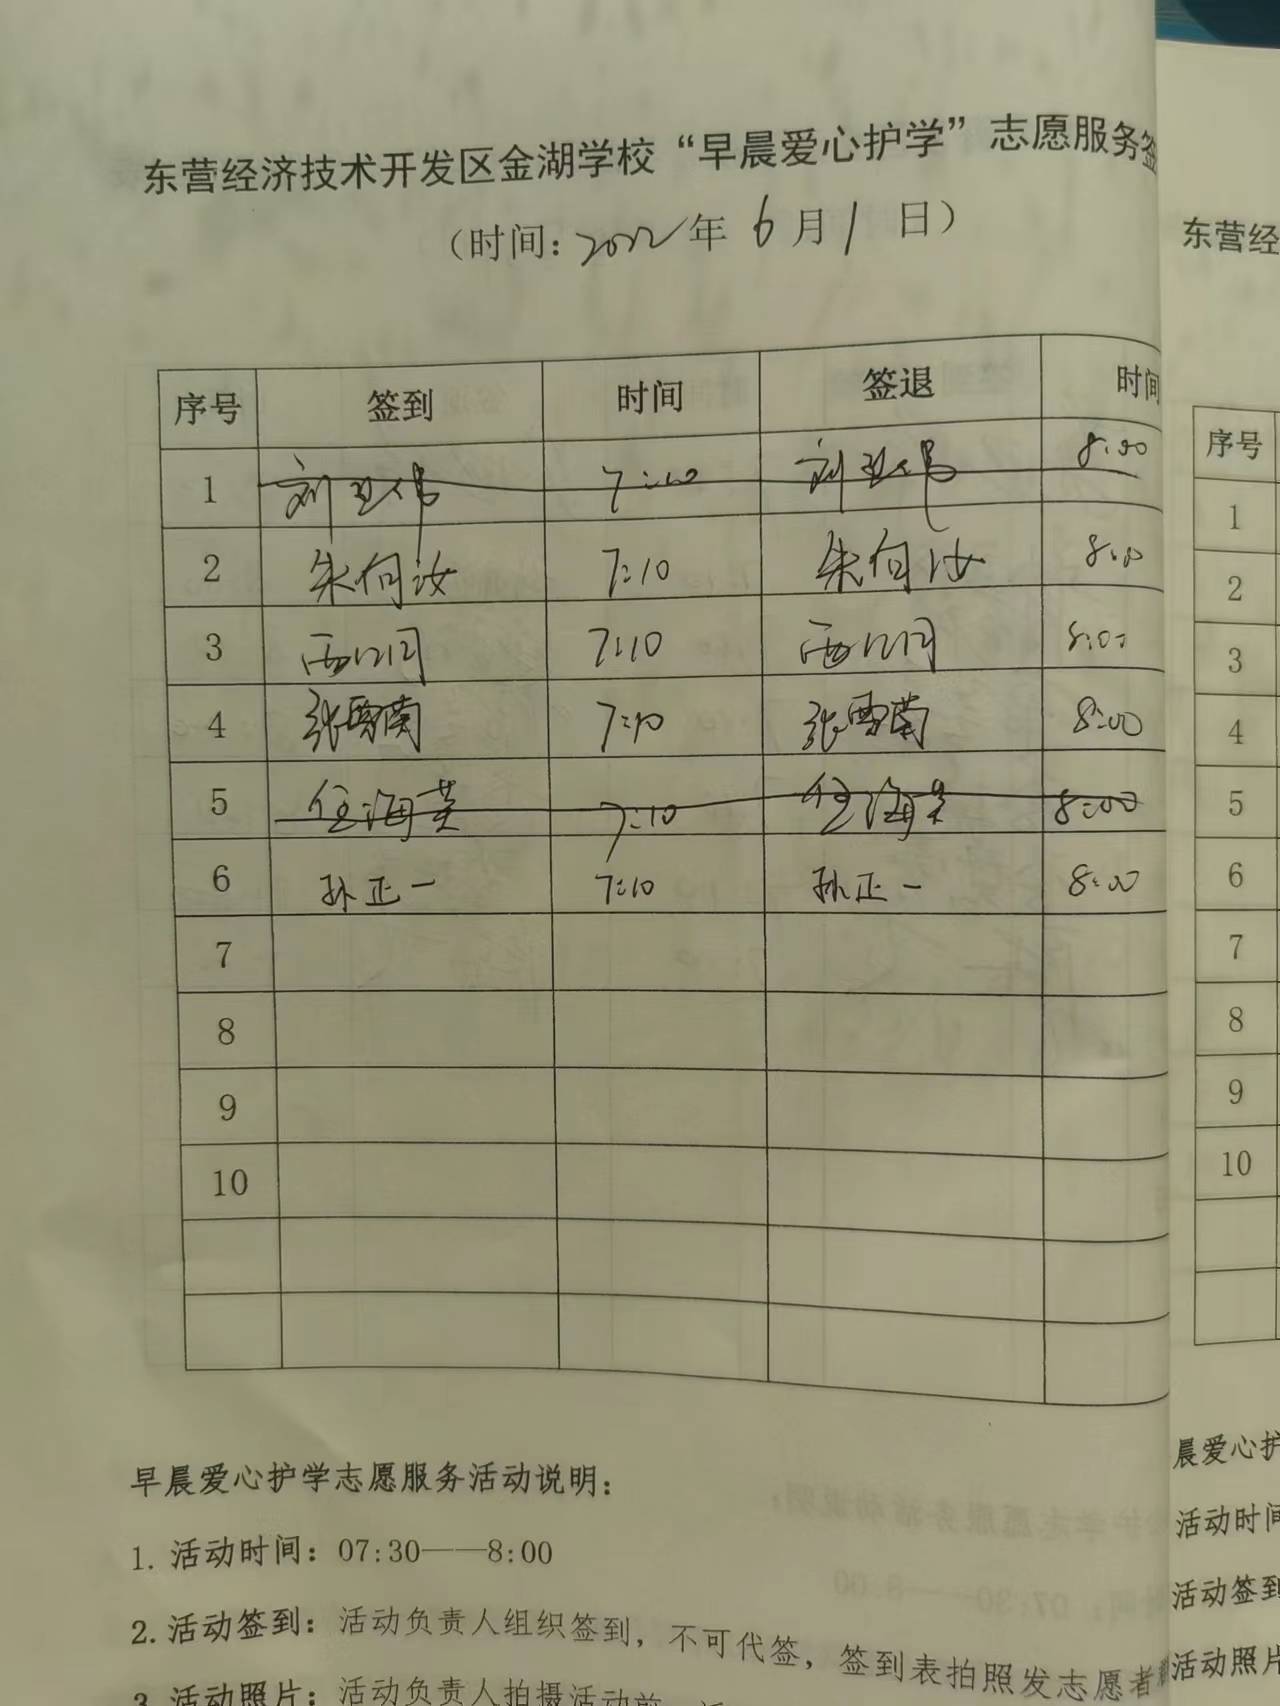 东营经济技术开发区金湖学校“早晨爱心护学”志愿服务签
（时间：2022年6月1日）
序号 签到 时间 签退 时间
1 刘卫伟 7:10 刘卫伟 8:00
2 朱向汝 7:10 朱向汝 8:00
3 7:10 8:00
4 张雪菌 7:10 张雪菌 8:00
5 任海英 7:10 任海英 8:00
6 孙正一 7:10 孙正一 8:00
7
8
9
10
早晨爱心护学志愿服务活动说明：
1. 活动时间：07:30——8:00
2. 活动签到：活动负责人组织签到，不可代签，签到表拍照发志愿者
3. 活动照片：活动负责人拍摄活动前
东营经
序号
1
2
3
4
5
6
7
8
9
10
晨爱心护
活动时间
活动签到
活动照片